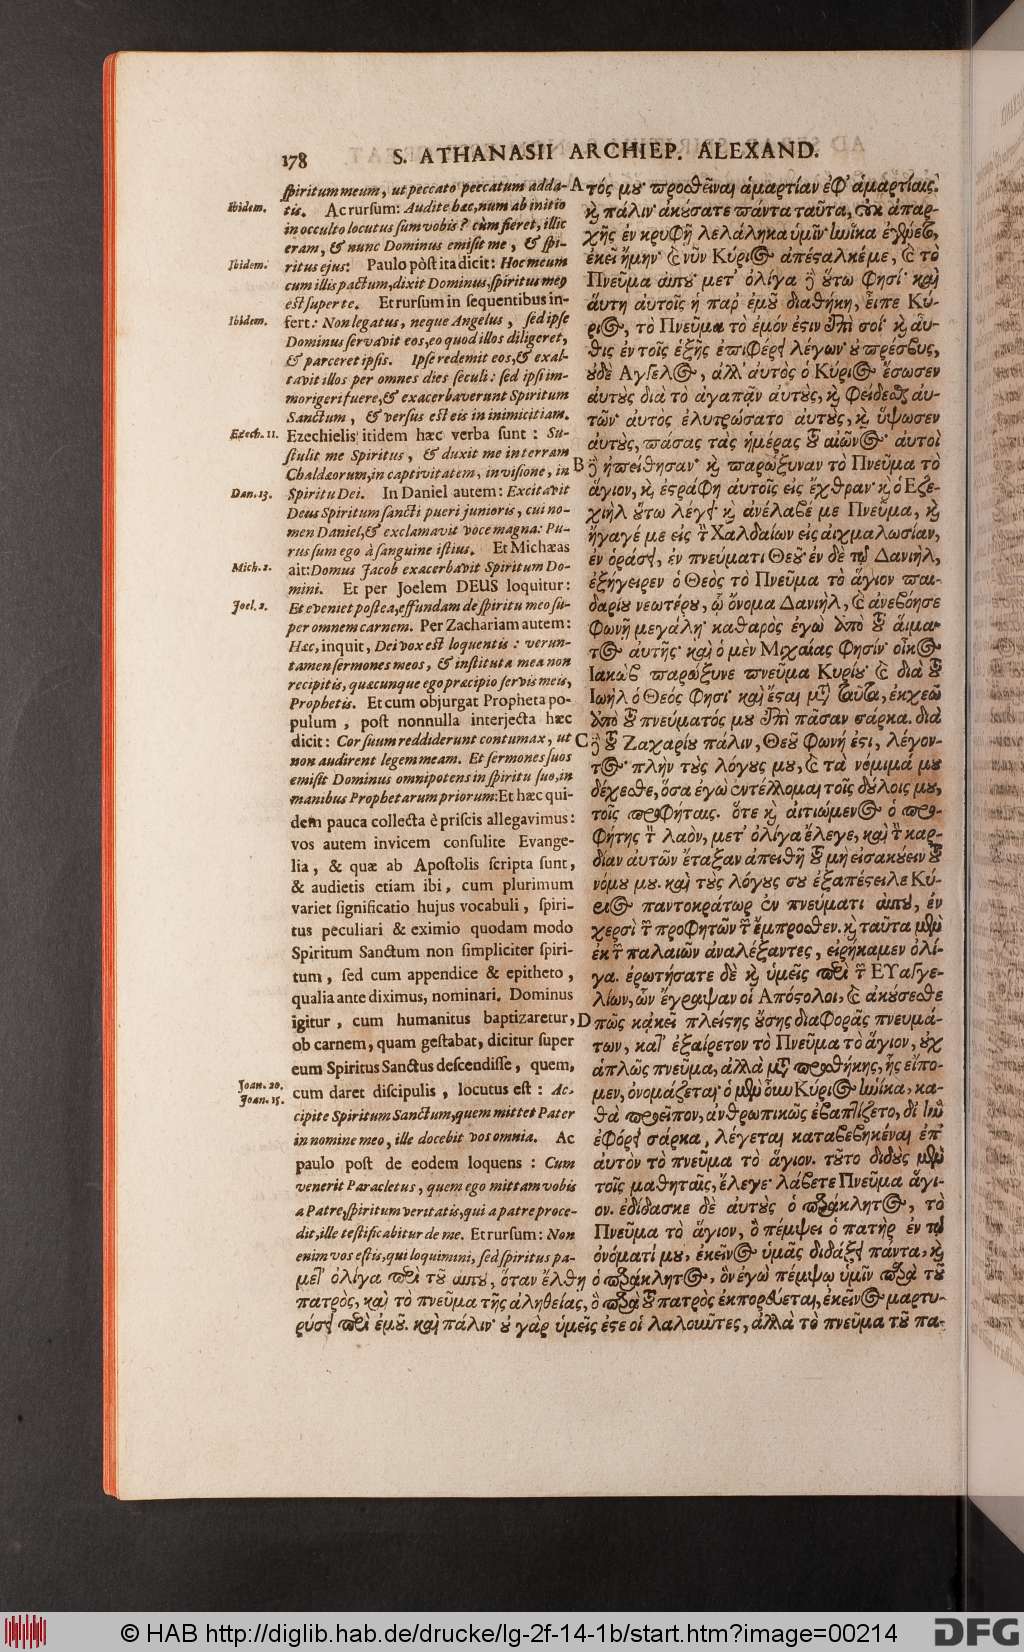 178
S. ATHANASII ARCHIEP. ALEXAND.
spiritum meum, ut peccato peccatum adda-
Ibidem.
tis. Ac rursum: Audite hæc, num ab initio
in occulto locutus sum vobis? cùm fieret, illic
eram, & nunc Dominus emisit me, & spi-
Ibidem.
ritus ejus: Paulo pòst ita dicit: Hoc meum
cum illis pactum, dixit Dominus, spiritus meus
est super te. Et rursum in sequentibus in-
Ibidem.
fert: Non legatus, neque Angelus, sed ipse
Dominus servavit eos, eo quod illos diligeret,
& parceret ipsis. Ipse redemit eos, & exal-
tavit illos per omnes dies seculi: sed ipsi im-
morigeri fuere, & exacerbaverunt Spiritum
Sanctum, & versus est eis in inimicitiam.
Ezech. 11.
Ezechielis itidem hæc verba sunt: Su-
stulit me Spiritus, & duxit me in terram
Chaldæorum, in captivitatem, in visione, in
Dan. 13.
Spiritu Dei. In Daniel autem: Excitavit
Deus Spiritum sancti pueri junioris, cui no-
men Daniel, & exclamavit voce magna: Pu-
rus sum ego à sanguine istius. Et Michæas
Mich. 2.
ait: Domus Jacob exacerbavit Spiritum Do-
mini. Et per Joelem DEUS loquitur:
Joel. 2.
Et eveniet postea, effundam de spiritu meo su-
per omnem carnem. Per Zachariam autem:
Hæc, inquit, Dei vox est loquentis: verun-
tamen sermones meos, & instituta mea non
recipitis, quæcunque ego præcipio servis meis,
Prophetis. Et cum objurgat Propheta po-
pulum, post nonnulla interjecta hæc
dicit: Cor suum reddiderunt contumax, ut
non audirent legem meam. Et sermones suos
emisit Dominus omnipotens in spiritu suo, in
manibus Prophetarum priorum: Et hæc qui-
dem pauca collecta è priscis allegavimus:
vos autem invicem consulite Evange-
lia, & quæ ab Apostolis scripta sunt,
& audietis etiam ibi, cum plurimum
variet significatio hujus vocabuli, spiri-
tus peculiari & eximio quodam modo
Spiritum Sanctum non simpliciter spiri-
tum, sed cum appendice & epitheto,
qualia ante diximus, nominari. Dominus
igitur, cum humanitus baptizaretur,
ob carnem, quam gestabat, dicitur super
eum Spiritus Sanctus descendisse, quem,
Joan. 20.
cum daret discipulis, locutus est: Ac-
Joan. 15.
cipite Spiritum Sanctum, quem mittet Pater
in nomine meo, ille docebit vos omnia. Ac
paulo post de eodem loquens: Cum
venerit Paracletus, quem ego mittam vobis
a Patre, spiritum veritatis, qui a patre proce-
dit, ille testificabitur de me. Et rursum: Non
enim vos estis, qui loquimini, sed spiritus pa-
A τός μου προσθεῖναι ἁμαρτίαν ἐφ' ἁμαρτίαις.
καὶ πάλιν· ἀκούσατε πάντα ταῦτα, οὐκ ἀπαρ-
χῆς ἐν κρυφῇ λελάληκα ὑμῖν· ἡνίκα ἐγένετο,
ἐκεῖ ἤμην· καὶ νῦν Κύριος ἀπέσταλκέ με, καὶ τὸ
Πνεῦμα αὐτοῦ· μετ' ὀλίγα δὲ οὕτω φησί· καὶ
ἅυτη ἀυτοῖς ἡ παρ' ἐμοῦ διαθήκη, εἶπε Κύ-
ριος, τὸ Πνεῦμα τὸ ἐμόν ἐστιν ἐπὶ σοί· καὶ αὖ-
θις ἐν τοῖς ἑξῆς ἐπιφέρει λέγων· οὐ πρέσβυς,
οὐδὲ Ἄγγελος, ἀλλ' αὐτὸς ὁ Κύριος ἔσωσεν
ἀυτοὺς διὰ τὸ ἀγαπᾷν ἀυτοὺς, καὶ φείδεσθαι ἀυ-
τῶν· αὐτὸς ἐλυτρώσατο ἀυτοὺς, καὶ ὕψωσεν
ἀυτοὺς, πάσας τὰς ἡμέρας τοῦ αἰῶνος· ἀυτοὶ
B δὲ ἠπείθησαν· καὶ παρώξυναν τὸ Πνεῦμα τὸ
ἅγιον, καὶ ἐστράφη ἀυτοῖς εἰς ἔχθραν· καὶ ὁ Εζε-
χιὴλ οὕτω λέγει· καὶ ἀνέλαβέ με Πνεῦμα, καὶ
ἤγαγέ με εἰς τὴν Χαλδαίων εἰς αἰχμαλωσίαν,
ἐν ὁράσει, ἐν πνεύματι Θεοῦ· ἐν δὲ τῷ Δανιὴλ,
ἐξήγειρεν ὁ Θεὸς τὸ Πνεῦμα τὸ ἅγιον παι-
δαρίου νεωτέρου, ᾧ ὄνομα Δανιὴλ, καὶ ἀνεβόησε
φωνῇ μεγάλῃ· καθαρὸς ἐγὼ ἀπὸ τοῦ ἅιμα-
τος ἀυτῆς· καὶ ὁ μὲν Μιχαίας φησίν· οἶκος
Ιακὼβ παρώξυνε πνεῦμα Κυρίου· καὶ διὰ τοῦ
Ιωὴλ ὁ Θεός φησι· καὶ ἔσται μετὰ ταῦτα, ἐκχεῶ
ἀπὸ τοῦ πνεύματός μου ἐπὶ πᾶσαν σάρκα. διὰ
C δὲ τοῦ Ζαχαρίου πάλιν, Θεοῦ φωνή ἐστι, λέγον-
τος· πλὴν τοὺς λόγους μου, καὶ τὰ νόμιμά μου
δέχεσθε, ὅσα ἐγὼ ἐντέλλομαι τοῖς δούλοις μου,
τοῖς προφήταις. ὅτε καὶ ἀιτιώμενος ὁ προ-
φήτης τὸν λαὸν, μετ' ὀλίγα ἔλεγε, καὶ τὴν καρ-
δίαν ἀυτῶν ἔταξαν ἀπειθῆ τοῦ μὴ εἰσακούειν τοῦ
νόμου μου. καὶ τοὺς λόγους σου ἐξαπέστειλε Κύ-
ριος παντοκράτωρ ἐν πνεύματι αὐτοῦ, ἐν
χερσὶ τῶν προφητῶν τῶν ἔμπροσθεν. καὶ ταῦτα μὲν
ἐκ τῶν παλαιῶν ἀναλέξαντες, εἰρήκαμεν ὀλί-
γα. ἐρωτήσατε δὲ καὶ ὑμεῖς περὶ τῶν ΕΥαγγε-
λίων, ὧν ἔγραψαν οἱ Ἀπόστολοι, καὶ ἀκούσεσθε
D πῶς κᾀκεῖ πλείστης οὔσης διαφορᾶς πνευμά-
των, κατ' ἐξαίρετον τὸ Πνεῦμα τὸ ἅγιον, οὐχ
ἁπλῶς πνεῦμα, ἀλλὰ μετὰ προσθήκης, ἧς εἴπο-
μεν, ὀνομάζεται· ὁ μὲν οὖν Κύριος ἡνίκα, κα-
θὰ προεῖπον, ἀνθρωπικῶς ἐβαπτίζετο, δι' ἣν
ἐφόρει σάρκα, λέγεται καταβεβηκέναι ἐπ'
αὐτὸν τὸ πνεῦμα τὸ ἅγιον. τοῦτο διδοὺς μὲν
τοῖς μαθηταῖς, ἔλεγε· λάβετε Πνεῦμα ἅγι-
ον. ἐδίδασκε δὲ ἀυτοὺς ὁ παράκλητος, τὸ
Πνεῦμα τὸ ἅγιον, ὃ πέμψει ὁ πατὴρ ἐν τῷ
ὀνόματί μου, ἐκεῖνος ὑμᾶς διδάξει πάντα, καὶ
μετ' ὀλίγα περὶ τοῦ αὐτοῦ, ὅταν ἔλθῃ ὁ παράκλητος, ὃν ἐγὼ πέμψω ὑμῖν παρὰ τοῦ
πατρὸς, καὶ τὸ πνεῦμα τῆς ἀληθείας, ὃ παρὰ τοῦ πατρὸς ἐκπορεύεται, ἐκεῖνος μαρτυ-
ρήσει περὶ ἐμοῦ. καὶ πάλιν· οὐ γὰρ ὑμεῖς ἐστε οἱ λαλοῦντες, ἀλλὰ τὸ πνεῦμα τοῦ πα-
© HAB http://diglib.hab.de/drucke/lg-2f-14-1b/start.htm?image=00214
DFG